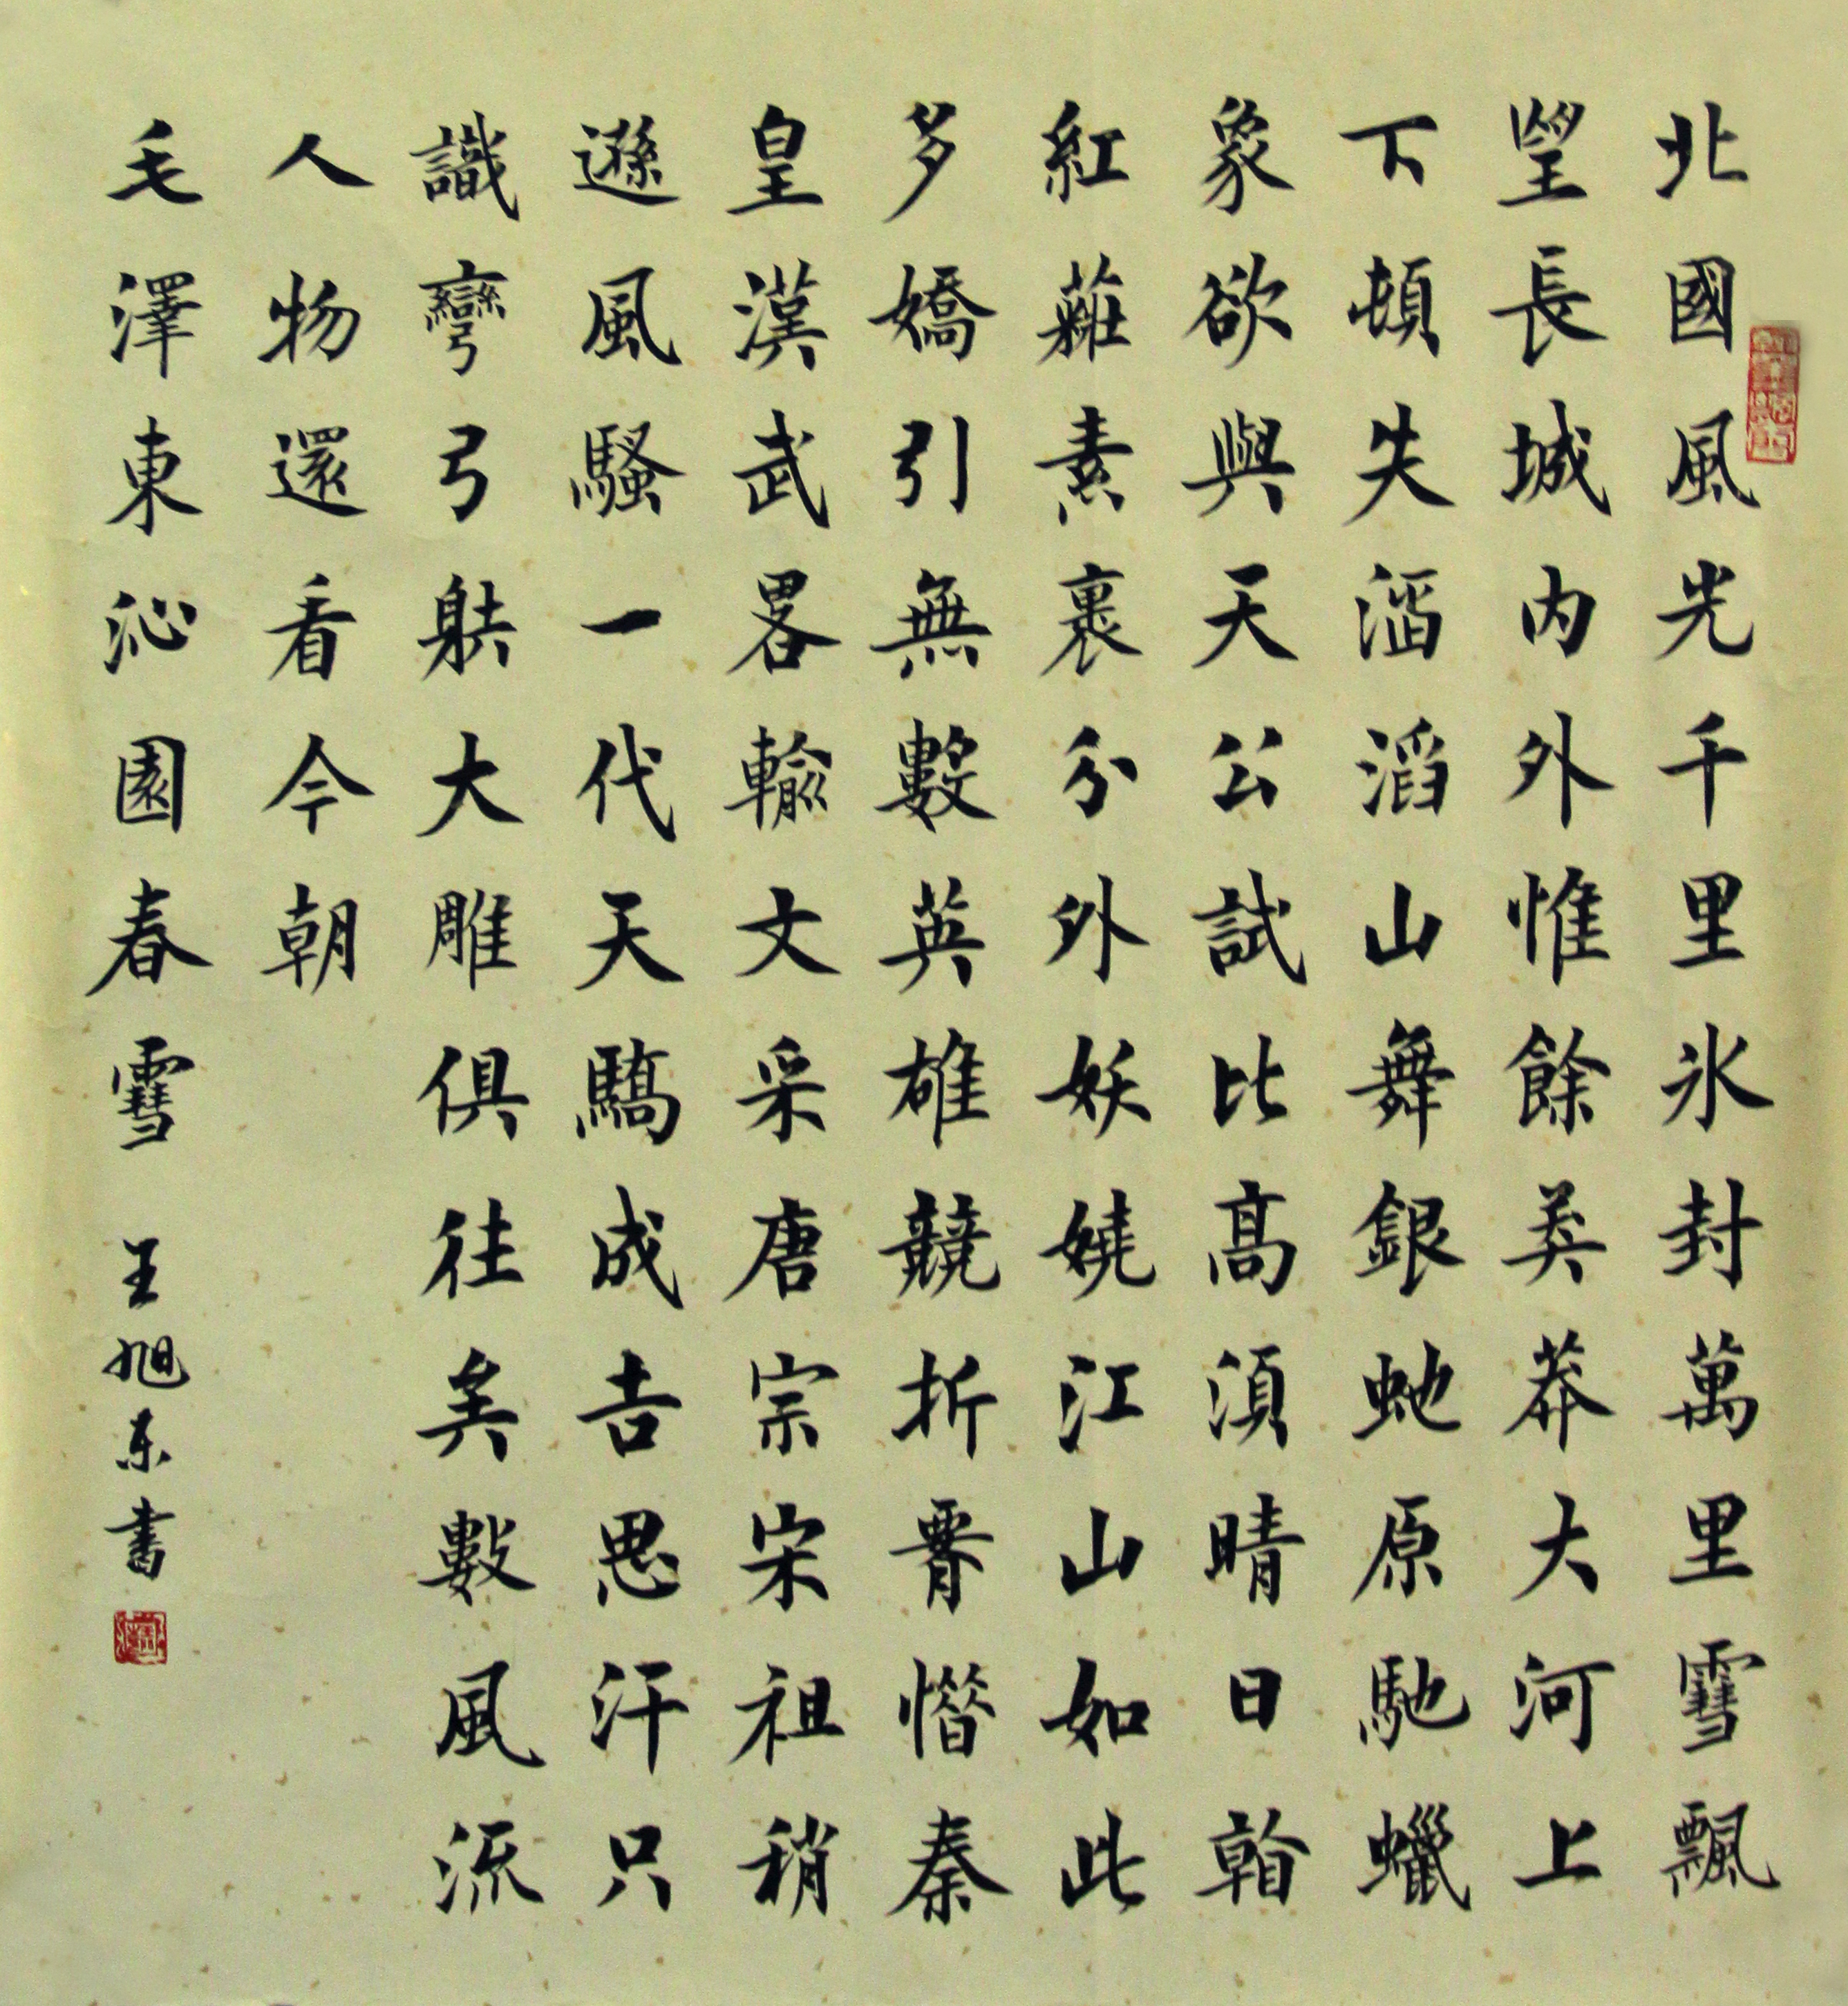 北國風光千里氷封萬里雪飄
望長城内外惟餘莽莽大河上
下頓失滔滔山舞銀虵原馳蠟
象欲與天公試比髙湏晴日看
紅裝素裹分外妖嬈江山如此
多嬌引無數英雄競折脊惜秦
皇漢武畧輸文采唐宗宋祖稍
遜風騷一代天驕成吉思汗只
識彎弓射大雕俱往矣數風流
人物還看今朝
毛澤東沁園春雪 王旭东書